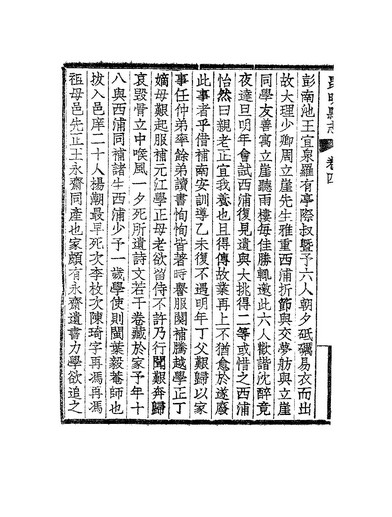 昆明縣志 卷四
彭南池王宜泉羅有亭際叔暨予六人朝夕砥礪易衣而出
故大理少卿周立崖先生雅重西浦折節與交夢舫與立崖
同學友善寓立崖聽雨樓每佳勝輒邀此六人歡諧沈醉竟
夜達旦明年會試西浦復見遺與大挑得二等或惜之西浦
怡然曰親老正宜我養也且得傳故業再上不猶愈於遂廢
此事者乎借補南安訓導乙未復不遇明年丁父艱歸以家
事任仲弟率餘弟讀書恂恂皆著時譽服闋補騰越學正丁
嫡母艱起服補元江學正母老欲留侍不許乃行聞艱奔歸
哀毀骨立中喉風一夕死所遺詩文若干卷藏於家予年十
八與西浦同補諸生西浦少予一歲學使則閩葉毅菴師也
拔入邑庠二十人揚潮最早死次李枚次陳琦字再馮再馮
祖母邑先正王永齋同產也家頗有永齋遺書力學欲追之